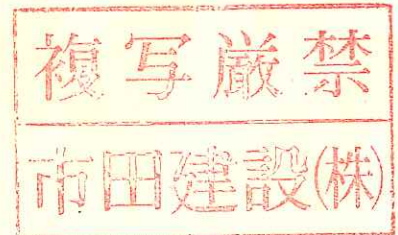 複写厳禁
市田建設(株)